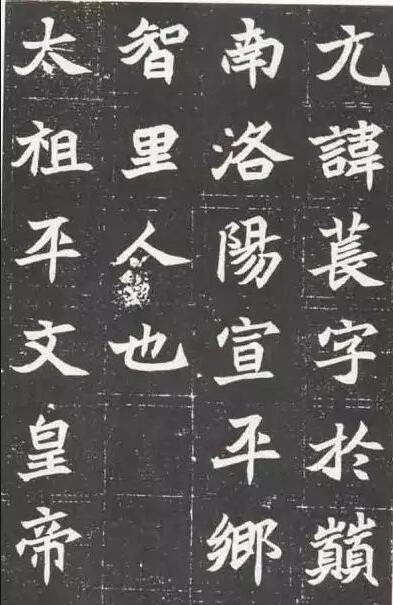 亢諱萇字於巔
南洛陽宣平鄉
智里人也
太祖平文皇帝